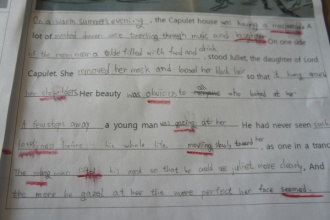 On a warm summer evening, the Capulet house was having a A
lot of were swirling through music and On one side
of the room was a table filled with food and drink
, stood Juliet, the daughter of Lord
Capulet. She removed her mask and her black hair so that it hung
her shoulders. Her beauty was obvious to who looked at her
A few steps away a young man was gazing at her. He had never seen such
loveliness before in his whole life, moving slowly toward her, as one in a tranc
The young man his mask so that he could see juliet more clearly. And
the more he gazed at her the more perfect her face seemed.